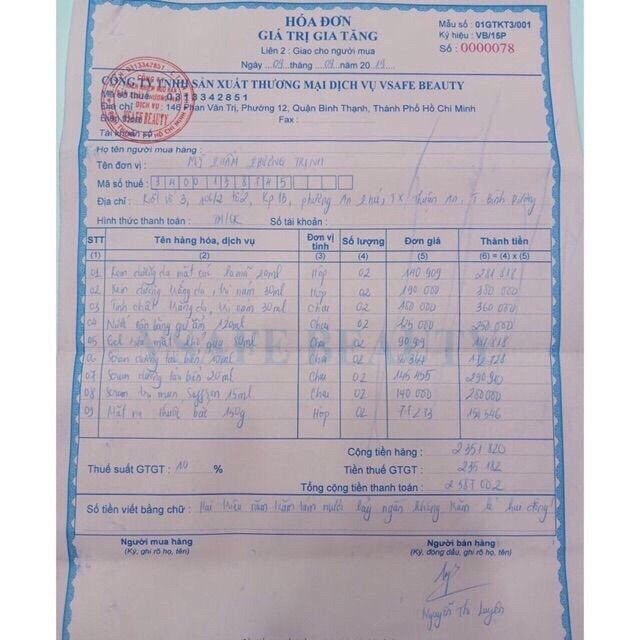 HÓA ĐƠN
GIÁ TRỊ GIA TĂNG
Liên 2 : Giao cho người mua
Ngày 09 tháng 09 năm 2019
Mẫu số : 01GTKT3/001
Ký hiệu : VB/15P
Số : 0000078
CÔNG TY TNHH SẢN XUẤT THƯƠNG MẠI DỊCH VỤ VSAFE BEAUTY
Mã số thuế : 0313342851
Địa chỉ : 146 Phan Văn Trị, Phường 12, Quận Bình Thạnh, Thành Phố Hồ Chí Minh
Điện thoại : Fax :
Tài khoản số :
Họ tên người mua hàng :
Tên đơn vị : MỸ PHẨM PHƯƠNG TRINH
Mã số thuế :
Địa chỉ : 3, KP 1B, phường An Phú, TX Thuận An, T Bình Dương
Hình thức thanh toán : TM/CK Số tài khoản :
STT Tên hàng hóa, dịch vụ Đơn vị tính Số lượng Đơn giá Thành tiền
(1) (2) (3) (4) (5) (6) = (4) x (5)
01 Kem dưỡng da mặt 20ml Hộp 02 140 909 281 818
02 Kem dưỡng trắng da, trị nám 30ml Hộp 02 190 000 380 000
03 Tinh chất trắng da, trị nám 30ml Chai 02 180 000 360 000
04 Nước cân bằng giữ ẩm 120ml Chai 02 125 000 250 000
05 Gel rửa mặt Chai 02 90 909 181 818
06 Serum dưỡng tảo biển 10ml Chai 02
07 Serum dưỡng tảo biển 20ml Chai 02 145 455 290 910
08 Serum trị mụn Saffron 15ml Chai 02 140 000 280 000
09 Mặt nạ thuốc bắc 150g Hộp 02 75 273 150 546
VSAFE BEAUTY
Cộng tiền hàng : 2 351 820
Thuế suất GTGT : 10 % Tiền thuế GTGT : 235 182
Tổng cộng tiền thanh toán : 2 587 002
Số tiền viết bằng chữ : Hai triệu năm trăm tám mươi bảy ngàn không trăm lẻ hai đồng
Người mua hàng Người bán hàng
(Ký, ghi rõ họ, tên) (Ký, đóng dấu, ghi rõ họ, tên)
Nguyễn Thị Luyện